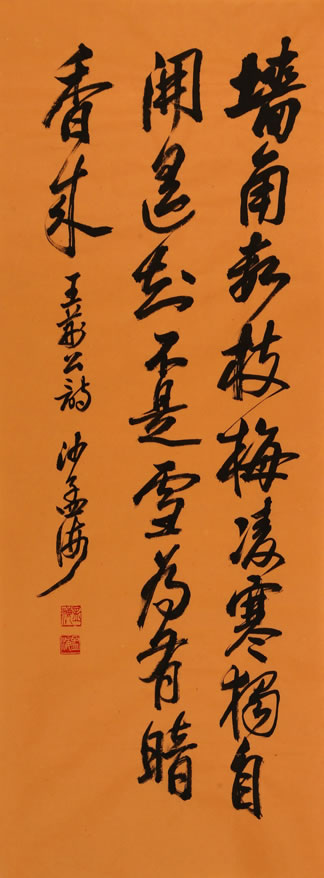 墙角数枝梅凌寒独自
開遥知不是雪为有暗
香来
王荆公詩 沙孟海